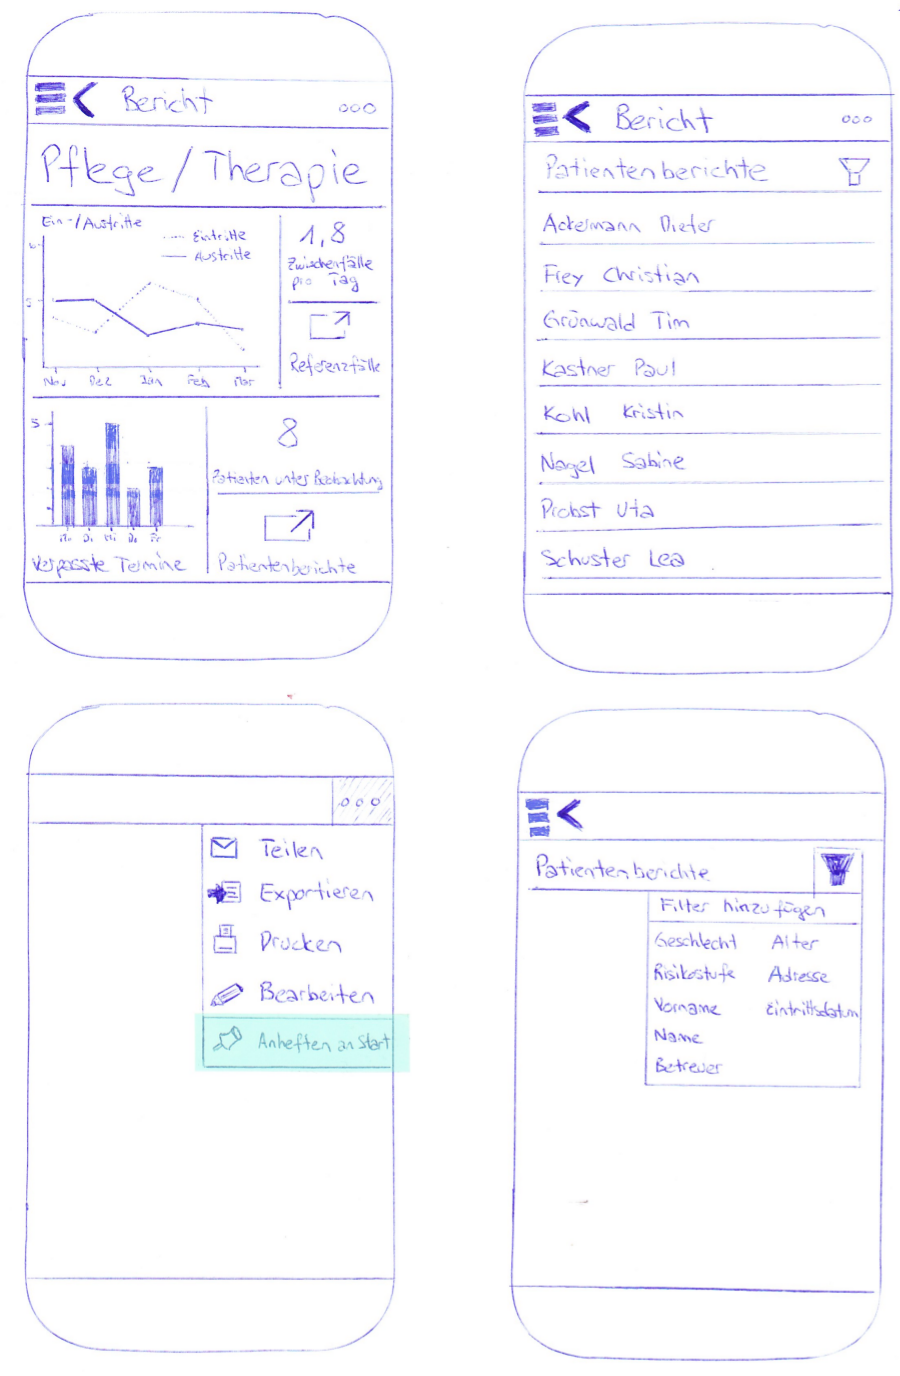 Bericht
ooo
Pflege / Therapie
Ein-/Austritte
Eintritte
Austritte
10
5
Nov Dez Jän Feb Mar
1,8
Zwischenfälle
pro Tag
Referenzfälle
5
Mo Di Mi Do Fr
Verpasste Termine
8
Patienten unter Beobachtung
Patientenberichte
Bericht
ooo
Patientenberichte
Ackermann Dieter
Frey Christian
Grünwald Tim
Kastner Paul
Kohl Kristin
Nagel Sabine
Probst Uta
Schuster Lea
ooo
Teilen
Exportieren
Drucken
Bearbeiten
Anheften an Start
Patientenberichte
Filter hinzufügen
Geschlecht Alter
Risikostufe Adresse
Vorname Eintrittsdatum
Name
Betreuer